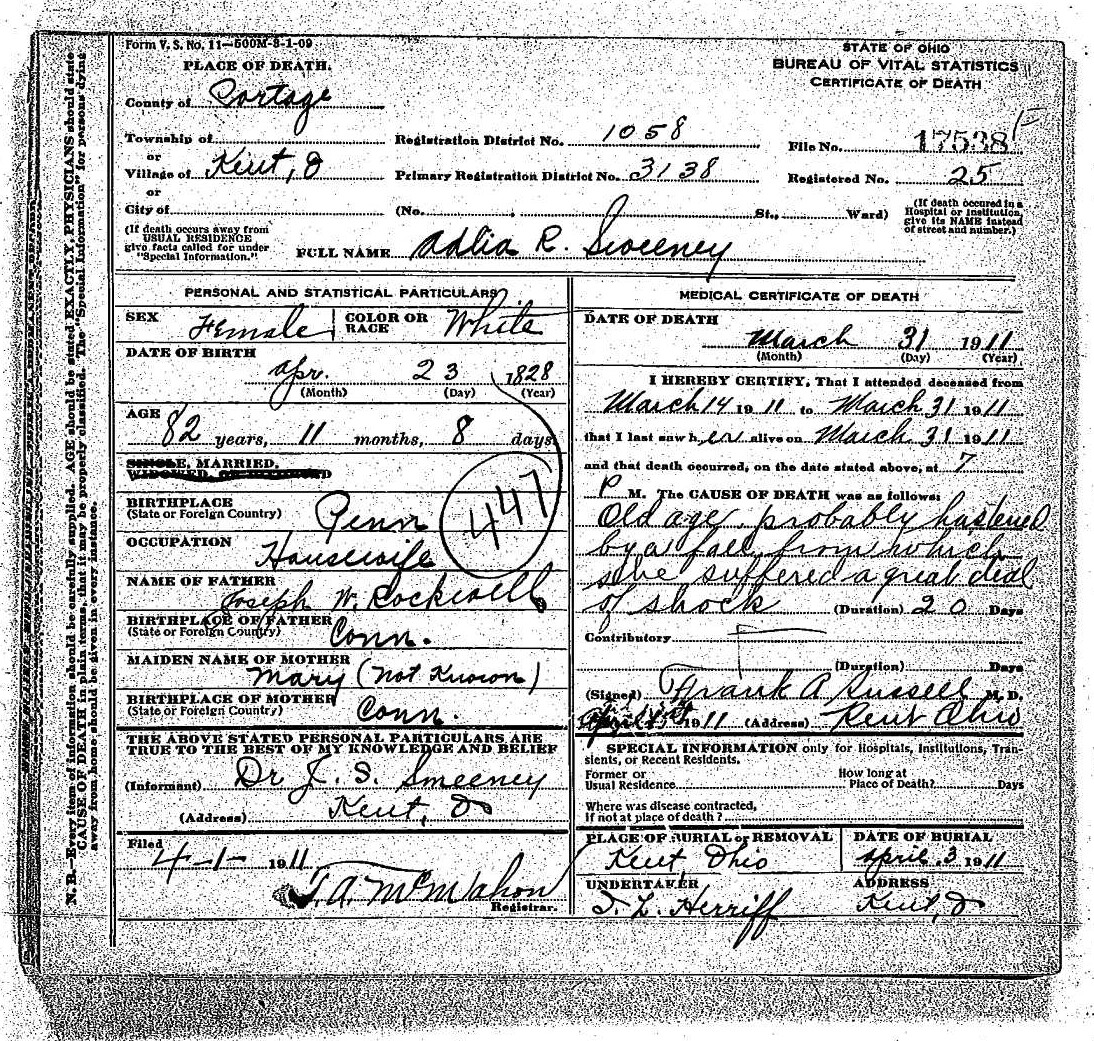 Form V. S. No. 11—500M-8-1-09
STATE OF OHIO
BUREAU OF VITAL STATISTICS
CERTIFICATE OF DEATH
PLACE OF DEATH.
County of Portage
Township of
or
Village of Kent, O
or
City of
Registration District No. 1058
Primary Registration District No. 3138
(No. , St., Ward)
File No. 17538
Registered No. 25
(If death occured in a
Hospital or Institution,
give its NAME instead
of street and number.)
(If death occurs away from
USUAL RESIDENCE
give facts called for under
"Special Information.")
FULL NAME Adlia R. Sweeney
PERSONAL AND STATISTICAL PARTICULARS
SEX Female
COLOR OR
RACE White
DATE OF BIRTH
Apr. 23 1828
(Month) (Day) (Year)
AGE
82 years, 11 months, 8 days
SINGLE, MARRIED,
WIDOWED, OR
BIRTHPLACE
(State or Foreign Country) Penn
447
OCCUPATION
Housewife
NAME OF FATHER
Joseph W. Rockwell
BIRTHPLACE OF FATHER
(State or Foreign Country) Conn.
MAIDEN NAME OF MOTHER
Mary (Not Known)
BIRTHPLACE OF MOTHER
(State or Foreign Country) Conn.
THE ABOVE STATED PERSONAL PARTICULARS ARE
TRUE TO THE BEST OF MY KNOWLEDGE AND BELIEF
(Informant) Dr J. S. Sweeney
(Address) Kent, O
Filed
4-1- 1911
T. A. McMahon
Registrar.
MEDICAL CERTIFICATE OF DEATH
DATE OF DEATH
March 31 1911
(Month) (Day) (Year)
I HEREBY CERTIFY, That I attended deceased from
March 14 1911 to March 31 1911
that I last saw her alive on March 31 1911
and that death occurred, on the date stated above, at 7
P M. The CAUSE OF DEATH was as follows:
Old age probably hastened
by a fall from which
she suffered a great deal
of shock (Duration) 20 Days
Contributory
(Duration) Days
(Signed) Frank A Russell M. D.
1911 (Address) Kent Ohio
SPECIAL INFORMATION only for Hospitals, Institutions, Tran-
sients, or Recent Residents.
Former or
Usual Residence
How long at
Place of Death? Days
Where was disease contracted,
If not at place of death?
PLACE OF BURIAL or REMOVAL
Kent Ohio
DATE OF BURIAL
April 3 1911
UNDERTAKER
S. L. Herriff
ADDRESS
Kent, O
N. B.—Every item of information should be carefully supplied. AGE should be stated EXACTLY, PHYSICIANS should state
CAUSE OF DEATH in plain terms, that it may be properly classified. The "Special Information" for persons dying
away from home should be given in every instance.